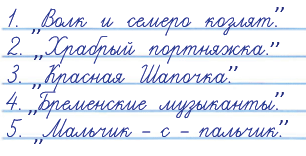 1. „Волк и семеро козлят.”
2. „Храбрый портняжка.”
3. „Красная Шапочка.”
4. „Бременские музыканты.”
5. „Мальчик - с - пальчик.”